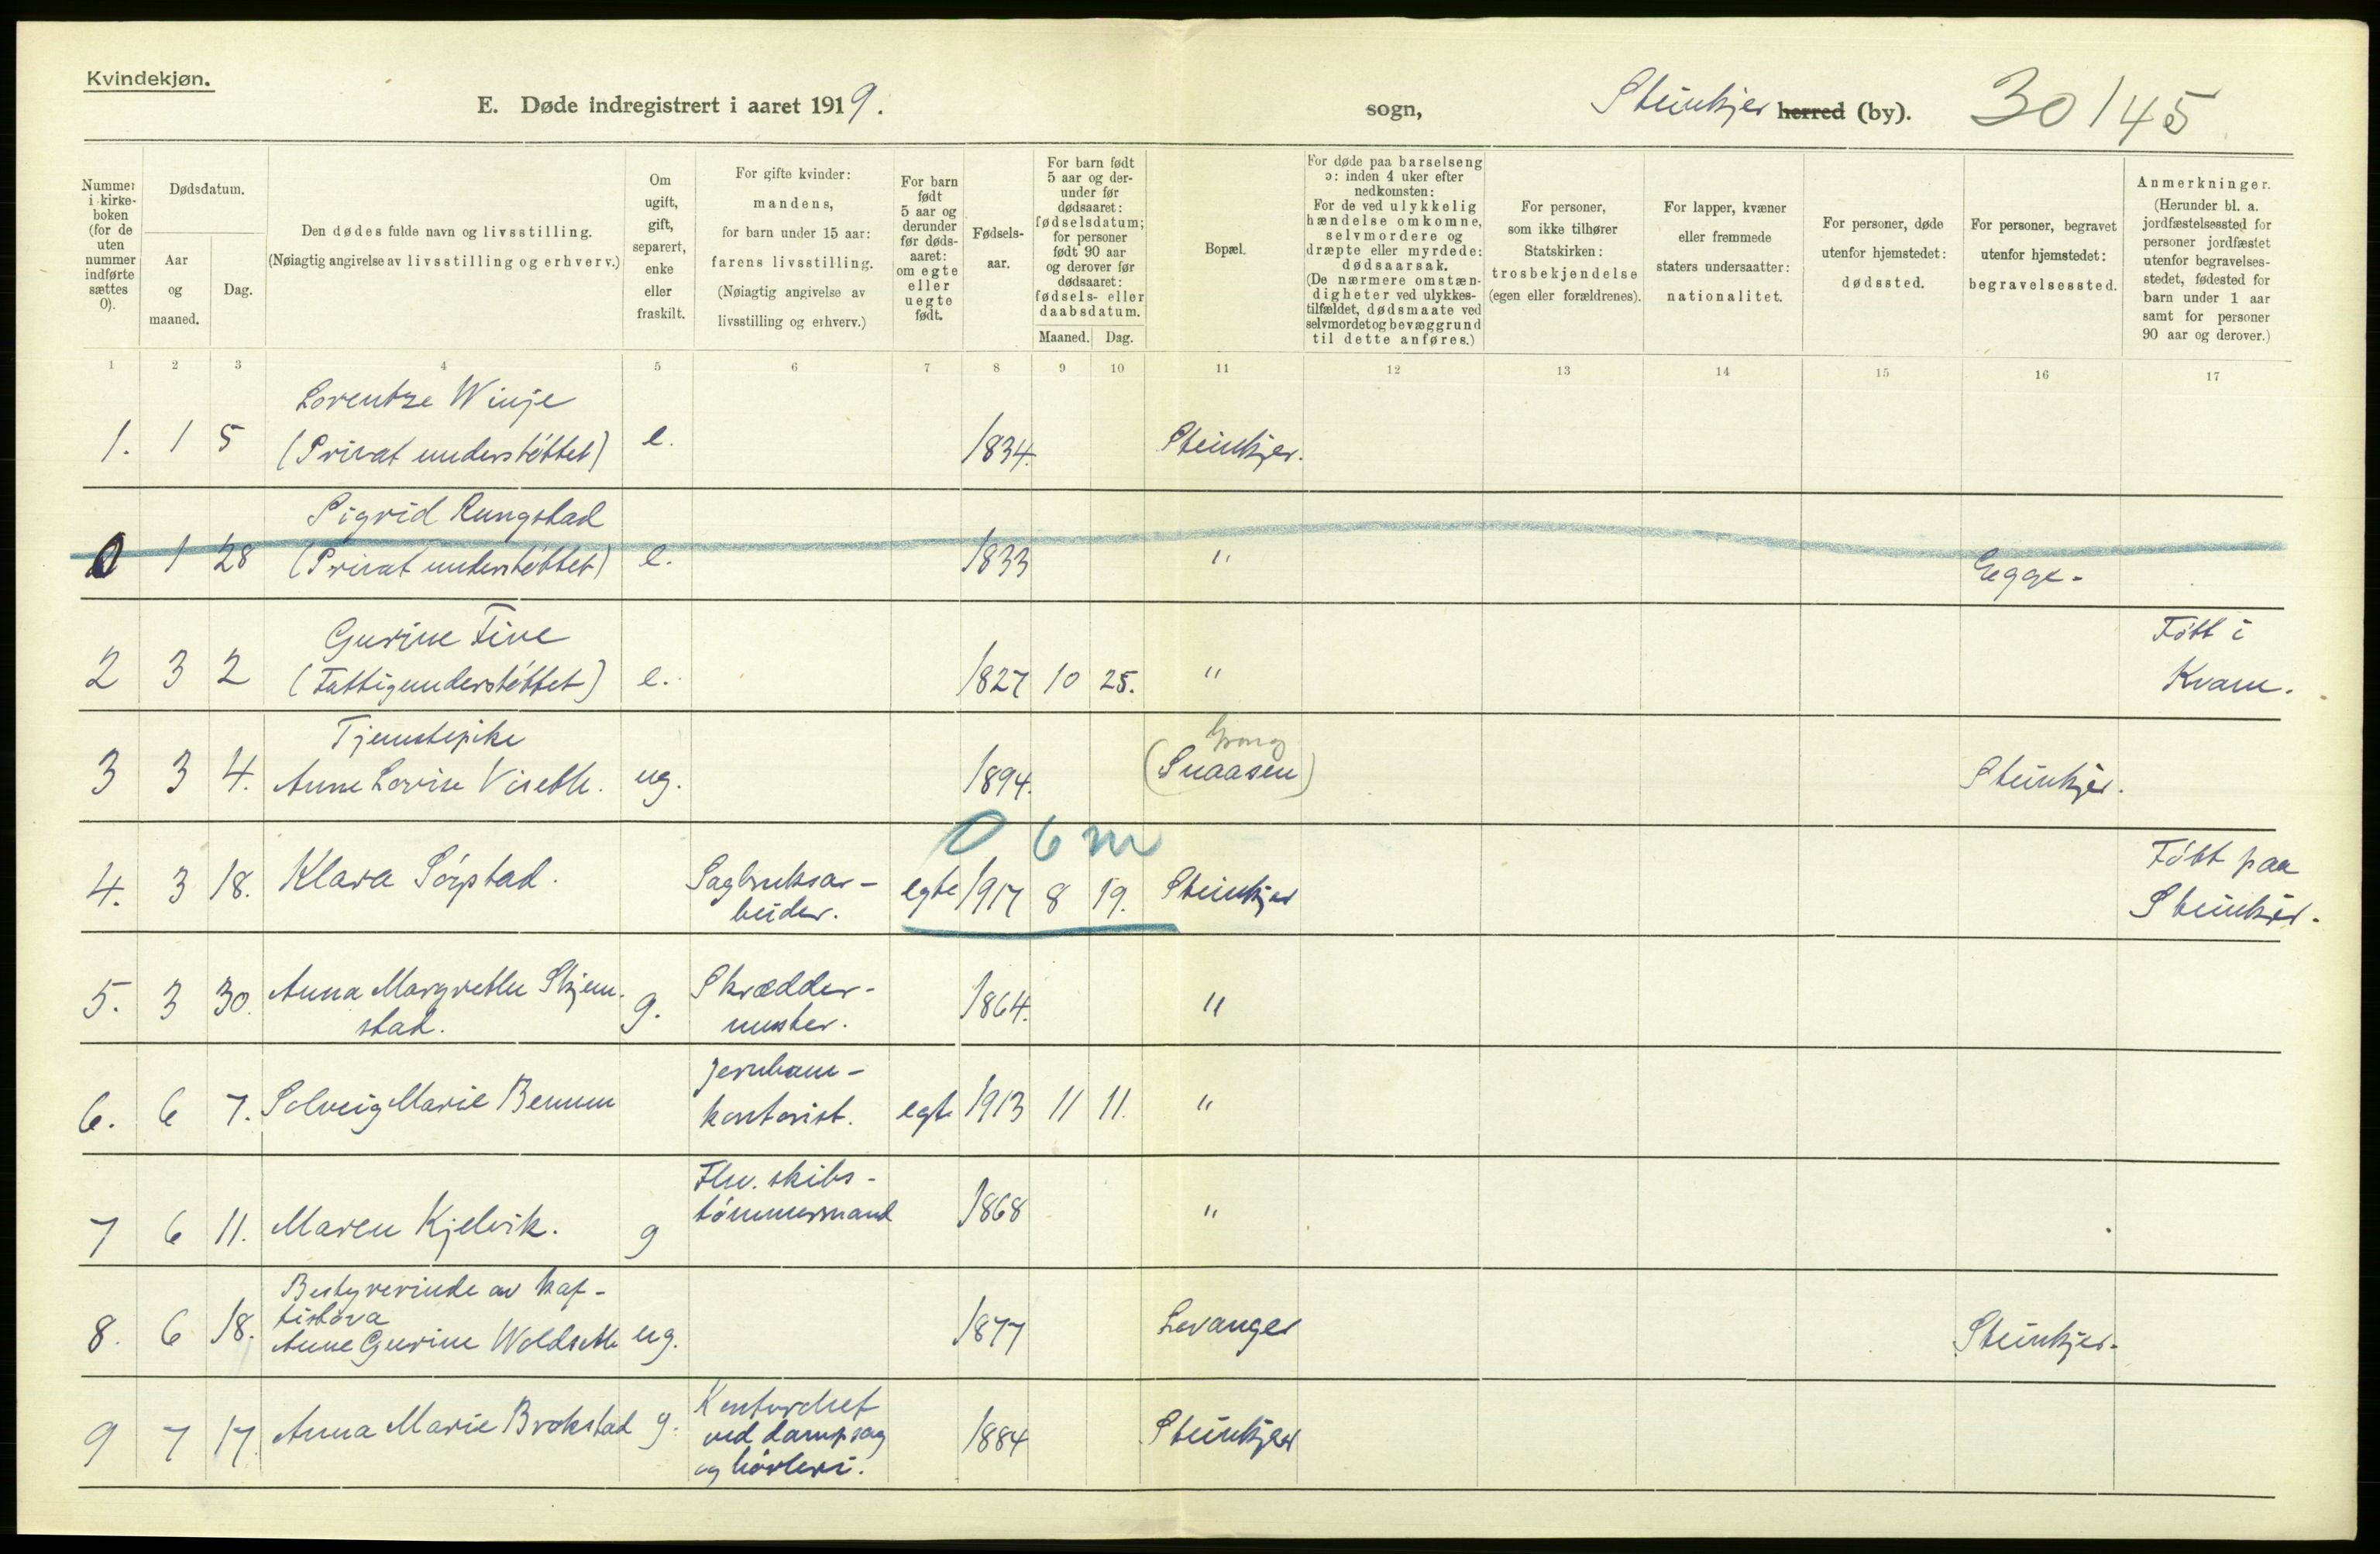 Kvindekjøn.
E. Døde indregistrert i aaret 1919. sogn, Steinkjer herred (by). 30/45
Nummer i kirkeboken (for de uten nummer indførte sættes 0).
Dødsdatum.
Aar og maaned.
Dag.
Den dødes fulde navn og livsstilling.
(Nøiagtig angivelse av livsstilling og erhverv.)
Om ugift, gift, separert, enke eller fraskilt.
For gifte kvinder: mandens, for barn under 15 aar: farens livsstilling. (Nøiagtig angivelse av livsstilling og erhverv.)
For barn født 5 aar og derunder før dødsaaret: om egte eller uegte født.
Fødselsaar.
For barn født 5 aar og derunder før dødsaaret: fødselsdatum; for personer født 90 aar og derover før dødsaaret: fødsels- eller daabsdatum.
Maaned. Dag.
Bopæl.
For døde paa barselseng ɔ: inden 4 uker efter nedkomsten: For de ved ulykkelig hændelse omkomne, selvmordere og dræpte eller myrdede: dødsaarsak. (De nærmere omstændigheter ved ulykkestilfældet, dødsmaate ved selvmordet og bevæggrund til dette anføres.)
For personer, som ikke tilhører Statskirken: trosbekjendelse (egen eller forældrenes).
For lapper, kvæner eller fremmede staters undersaatter: nationalitet.
For personer, døde utenfor hjemstedet: dødssted.
For personer, begravet utenfor hjemstedet: begravelsessted.
Anmerkninger. (Herunder bl. a. jordfæstelsessted for personer jordfæstet utenfor begravelsesstedet, fødested for barn under 1 aar samt for personer 90 aar og derover.)
1 2 3 4 5 6 7 8 9 10 11 12 13 14 15 16 17
Lorentze Winje
1. 1 5 (Privat understøttet) e. 1834. Steinkjer.
Sigrid Rungstad
0 1 28 (Privat understøttet) e. 1833 " Egge.
Gurine Five Født i
2 3 2 (Fattigunderstøttet) e. 1827 10 25. " Kvam.
Tjenestepike Grong
3 3 4. Anne Lovise ug. 1894. (Snaasen) Steinkjer.
0 6 m
4. 3 18. Klara Sørstad. Sagbruksar- egte 1917 8 19. Steinkjer Født paa
beider. Steinkjer.
5. 3 30. Anna Margrethe Skjem- g. Skrædder- 1864. "
stad. mester.
Jernbane-
6. 6 7. Solveig Marie Benum kontorist. egte 1913 11 11. "
Fhv. skibs-
7 6 11. Maren Kjelvik. g tømmermand 1868 "
Bestyrerinde av kaf-
fistova
8. 6 18. Anne Gurine Woldseth ug. 1877 Levanger Steinkjer.
9 7 17. Anna Marie Brokstad g. Kontorchef 1884 Steinkjer
ved dampsag
og høvleri.